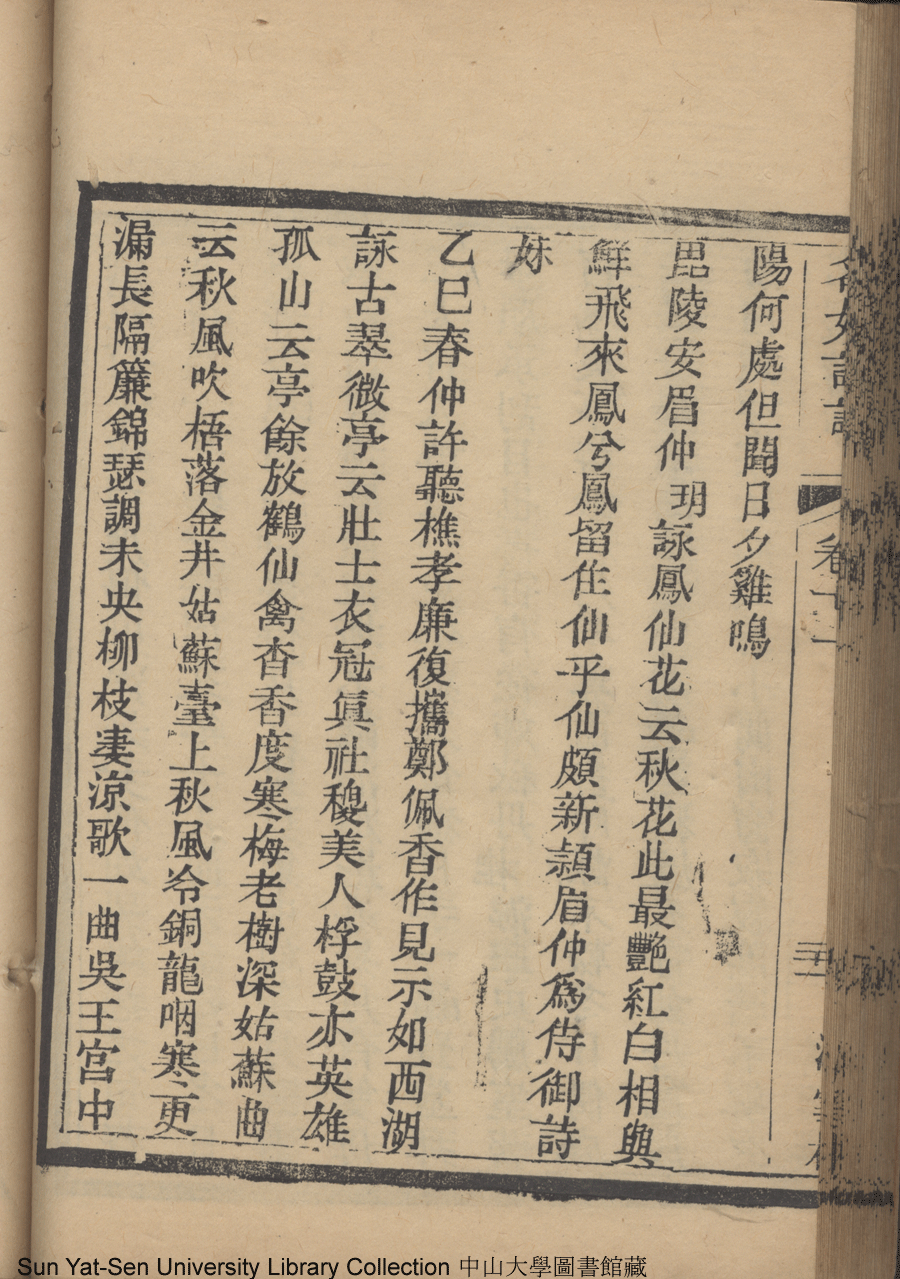 名媛詩話 卷十一
陽何處但聞日夕雞鳴
毘陵安眉仲玥詠鳳仙花云秋花此最艷紅白相與
鮮飛來鳳兮鳳留住仙乎仙頗新穎眉仲爲侍御詩
妹
乙巳春仲許聽樵孝廉復攜鄭佩香作見示如西湖
詠古翠微亭云壯士衣冠眞社稷美人桴鼓亦英雄
孤山云亭餘放鶴仙禽杳香度寒梅老樹深姑蘇曲
云秋風吹梧落金井姑蘇臺上秋風冷銅龍咽寒更
漏長隔簾錦瑟調未央柳枝凄涼歌一曲吳王宮中
Sun Yat-Sen University Library Collection 中山大學圖書館藏